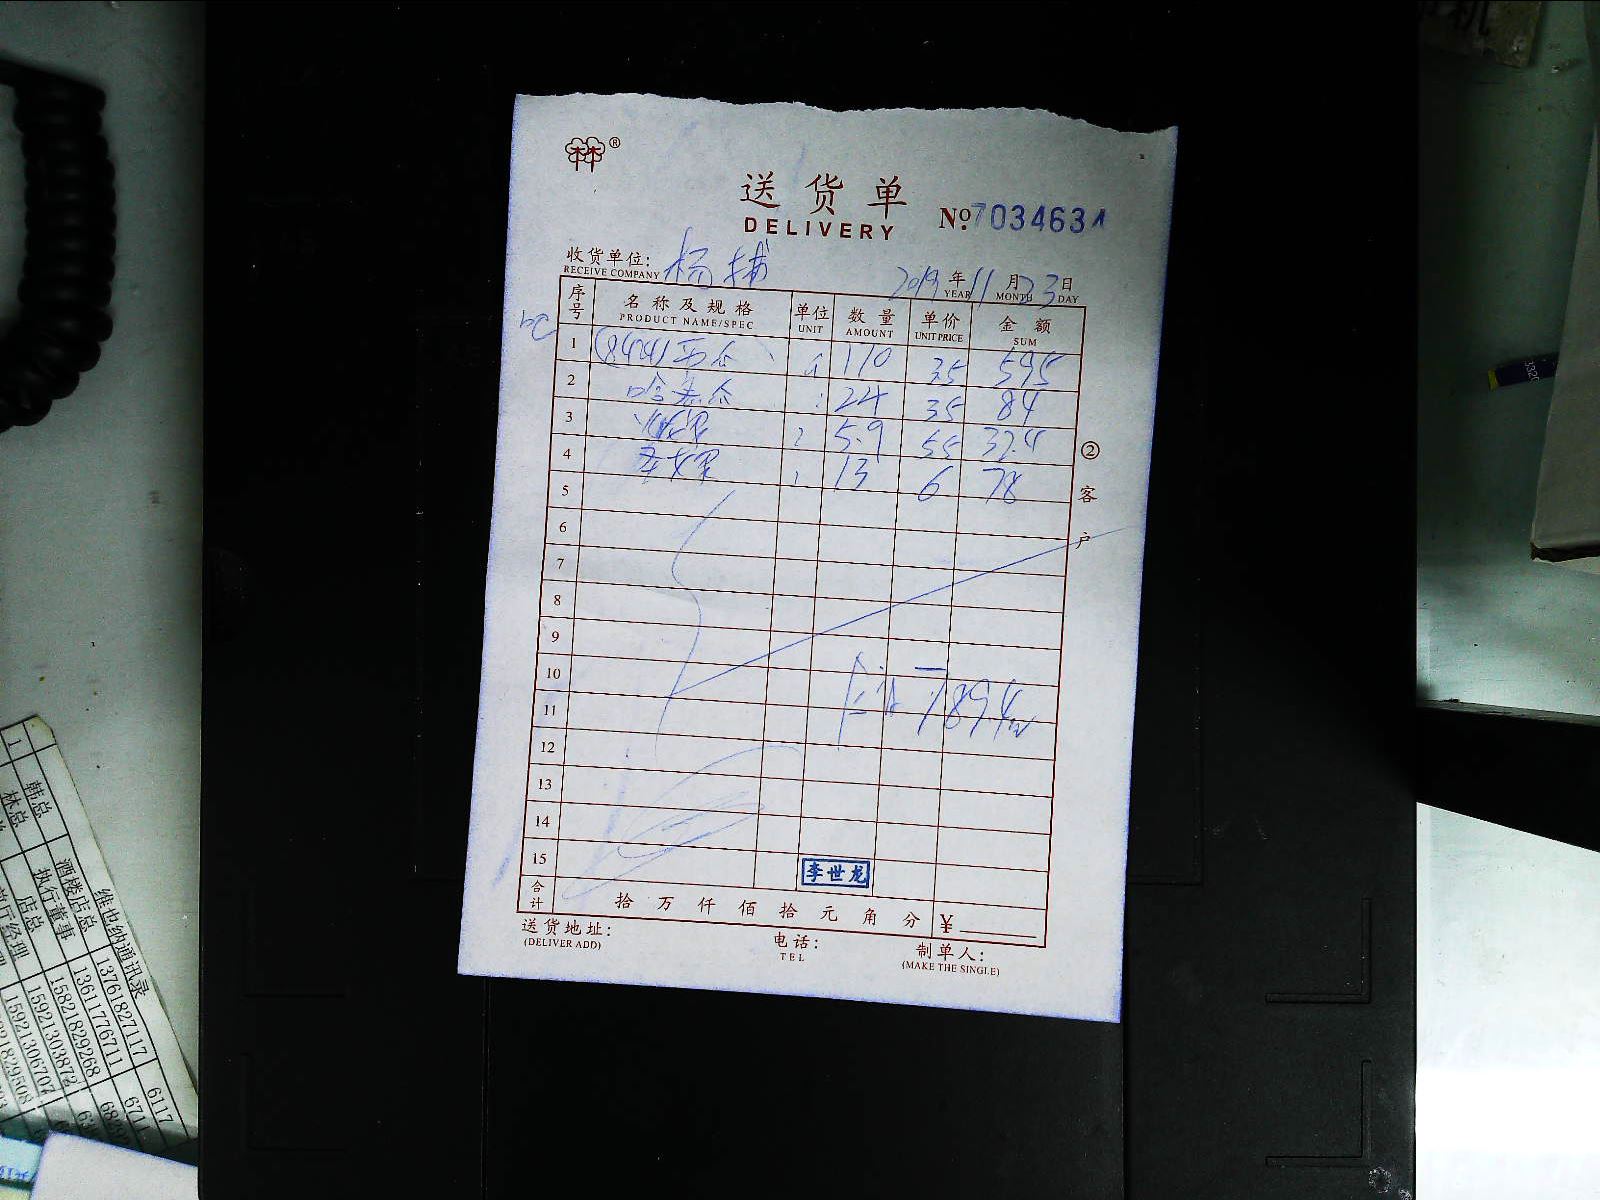 林®
送货单
DELIVERY
№7034634
收货单位:
RECEIVE COMPANY
2019 年 11 月 23 日
YEAR MONTH DAY
序号 名称及规格 单位 数量 单价 金额
PRODUCT NAME/SPEC UNIT AMOUNT UNIT PRICE SUM
1 (8424)西瓜 110 35 595
2 哈蜜瓜 24 35 84
3 火龙果 5.9 55 32.4
4 圣女果 13 6 78
5
6
7
8
9
10
11
合计 789.4
12
13
14
15
李世龙
合计 拾 万 仟 佰 拾 元 角 分 ¥
送货地址:
(DELIVER ADD)
电话:
TEL
制单人:
(MAKE THE SINGLE)
②客户
维也纳通讯录
酒楼店总 13761827117 6117
执行董事 13611776711
店总 15821829268
15921303872
15921306707
韩总
林总
1